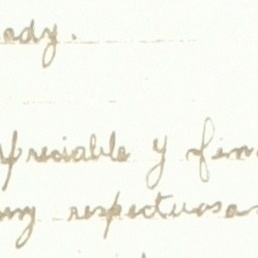 ady.
apreciable y fin
my respectuosa